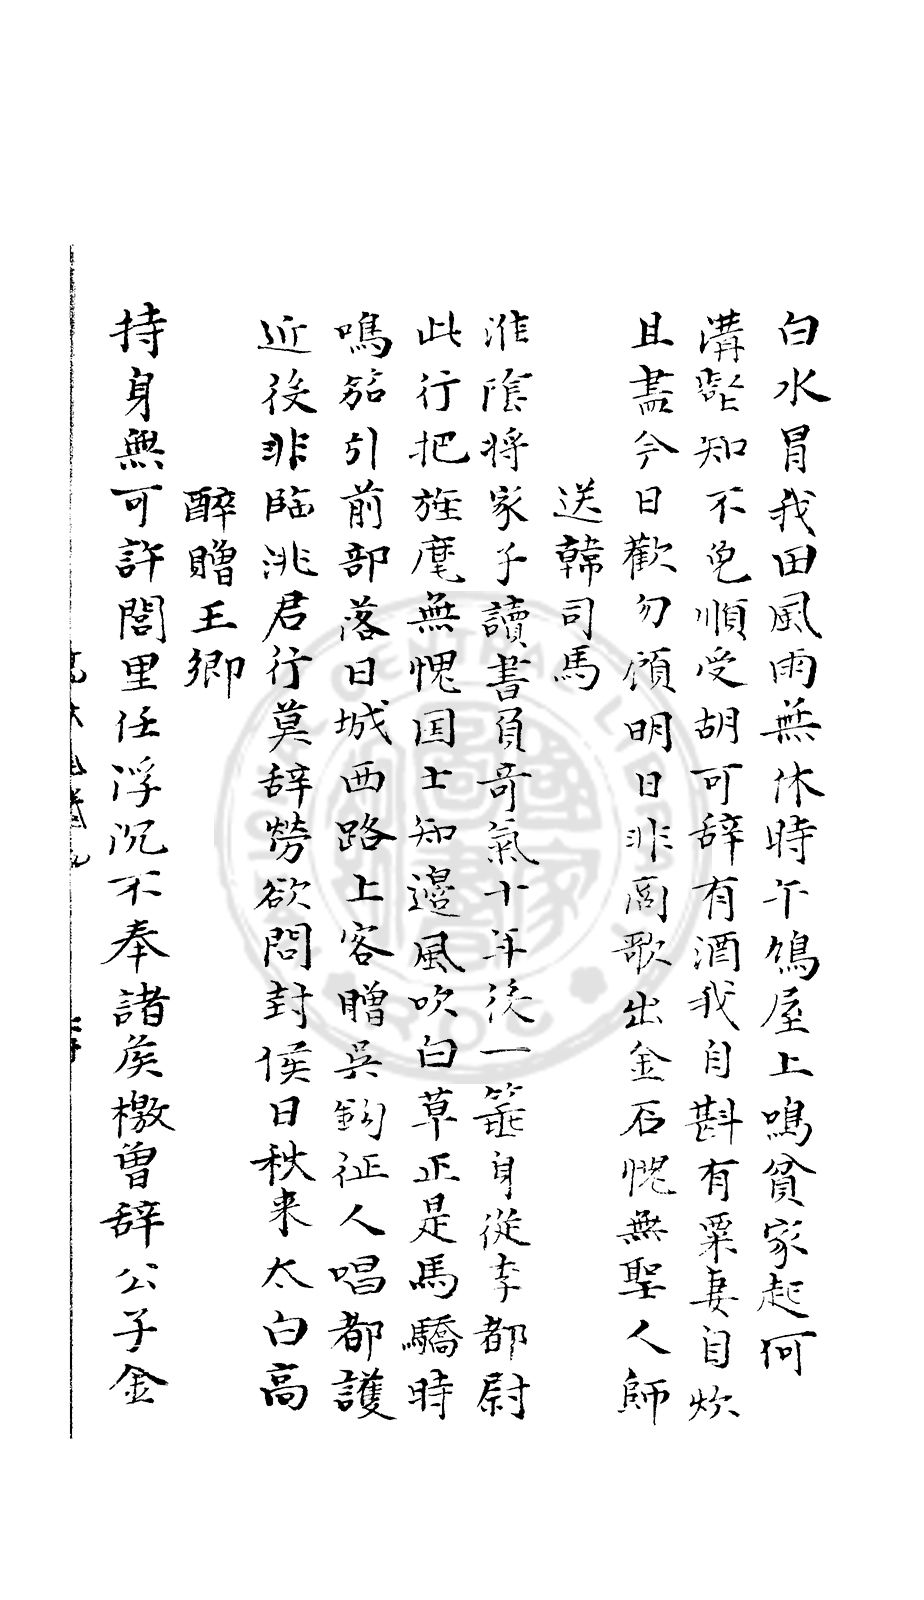 白水冒我田風雨無休時午鳩屋上鳴貧家起何
溝壑知不免順受胡可辞有酒我自斟有粟妻自炊
且盡今日歡勿顧明日非高歌出金石愧無聖人師
送韓司馬
淮陰将家子讀書負奇氣十年後一  身從李都尉
此行把旌麾無愧国士知邊風吹白草正是馬驕時
鳴笳引前部落日城西路上客贈吳鉤征人唱都護
近後非臨洮君行莫辞勞欲問封侯日秋来太白高
醉贈王卿
持身無可許閭里任浮沉不奉諸侯檄曽辞公子金